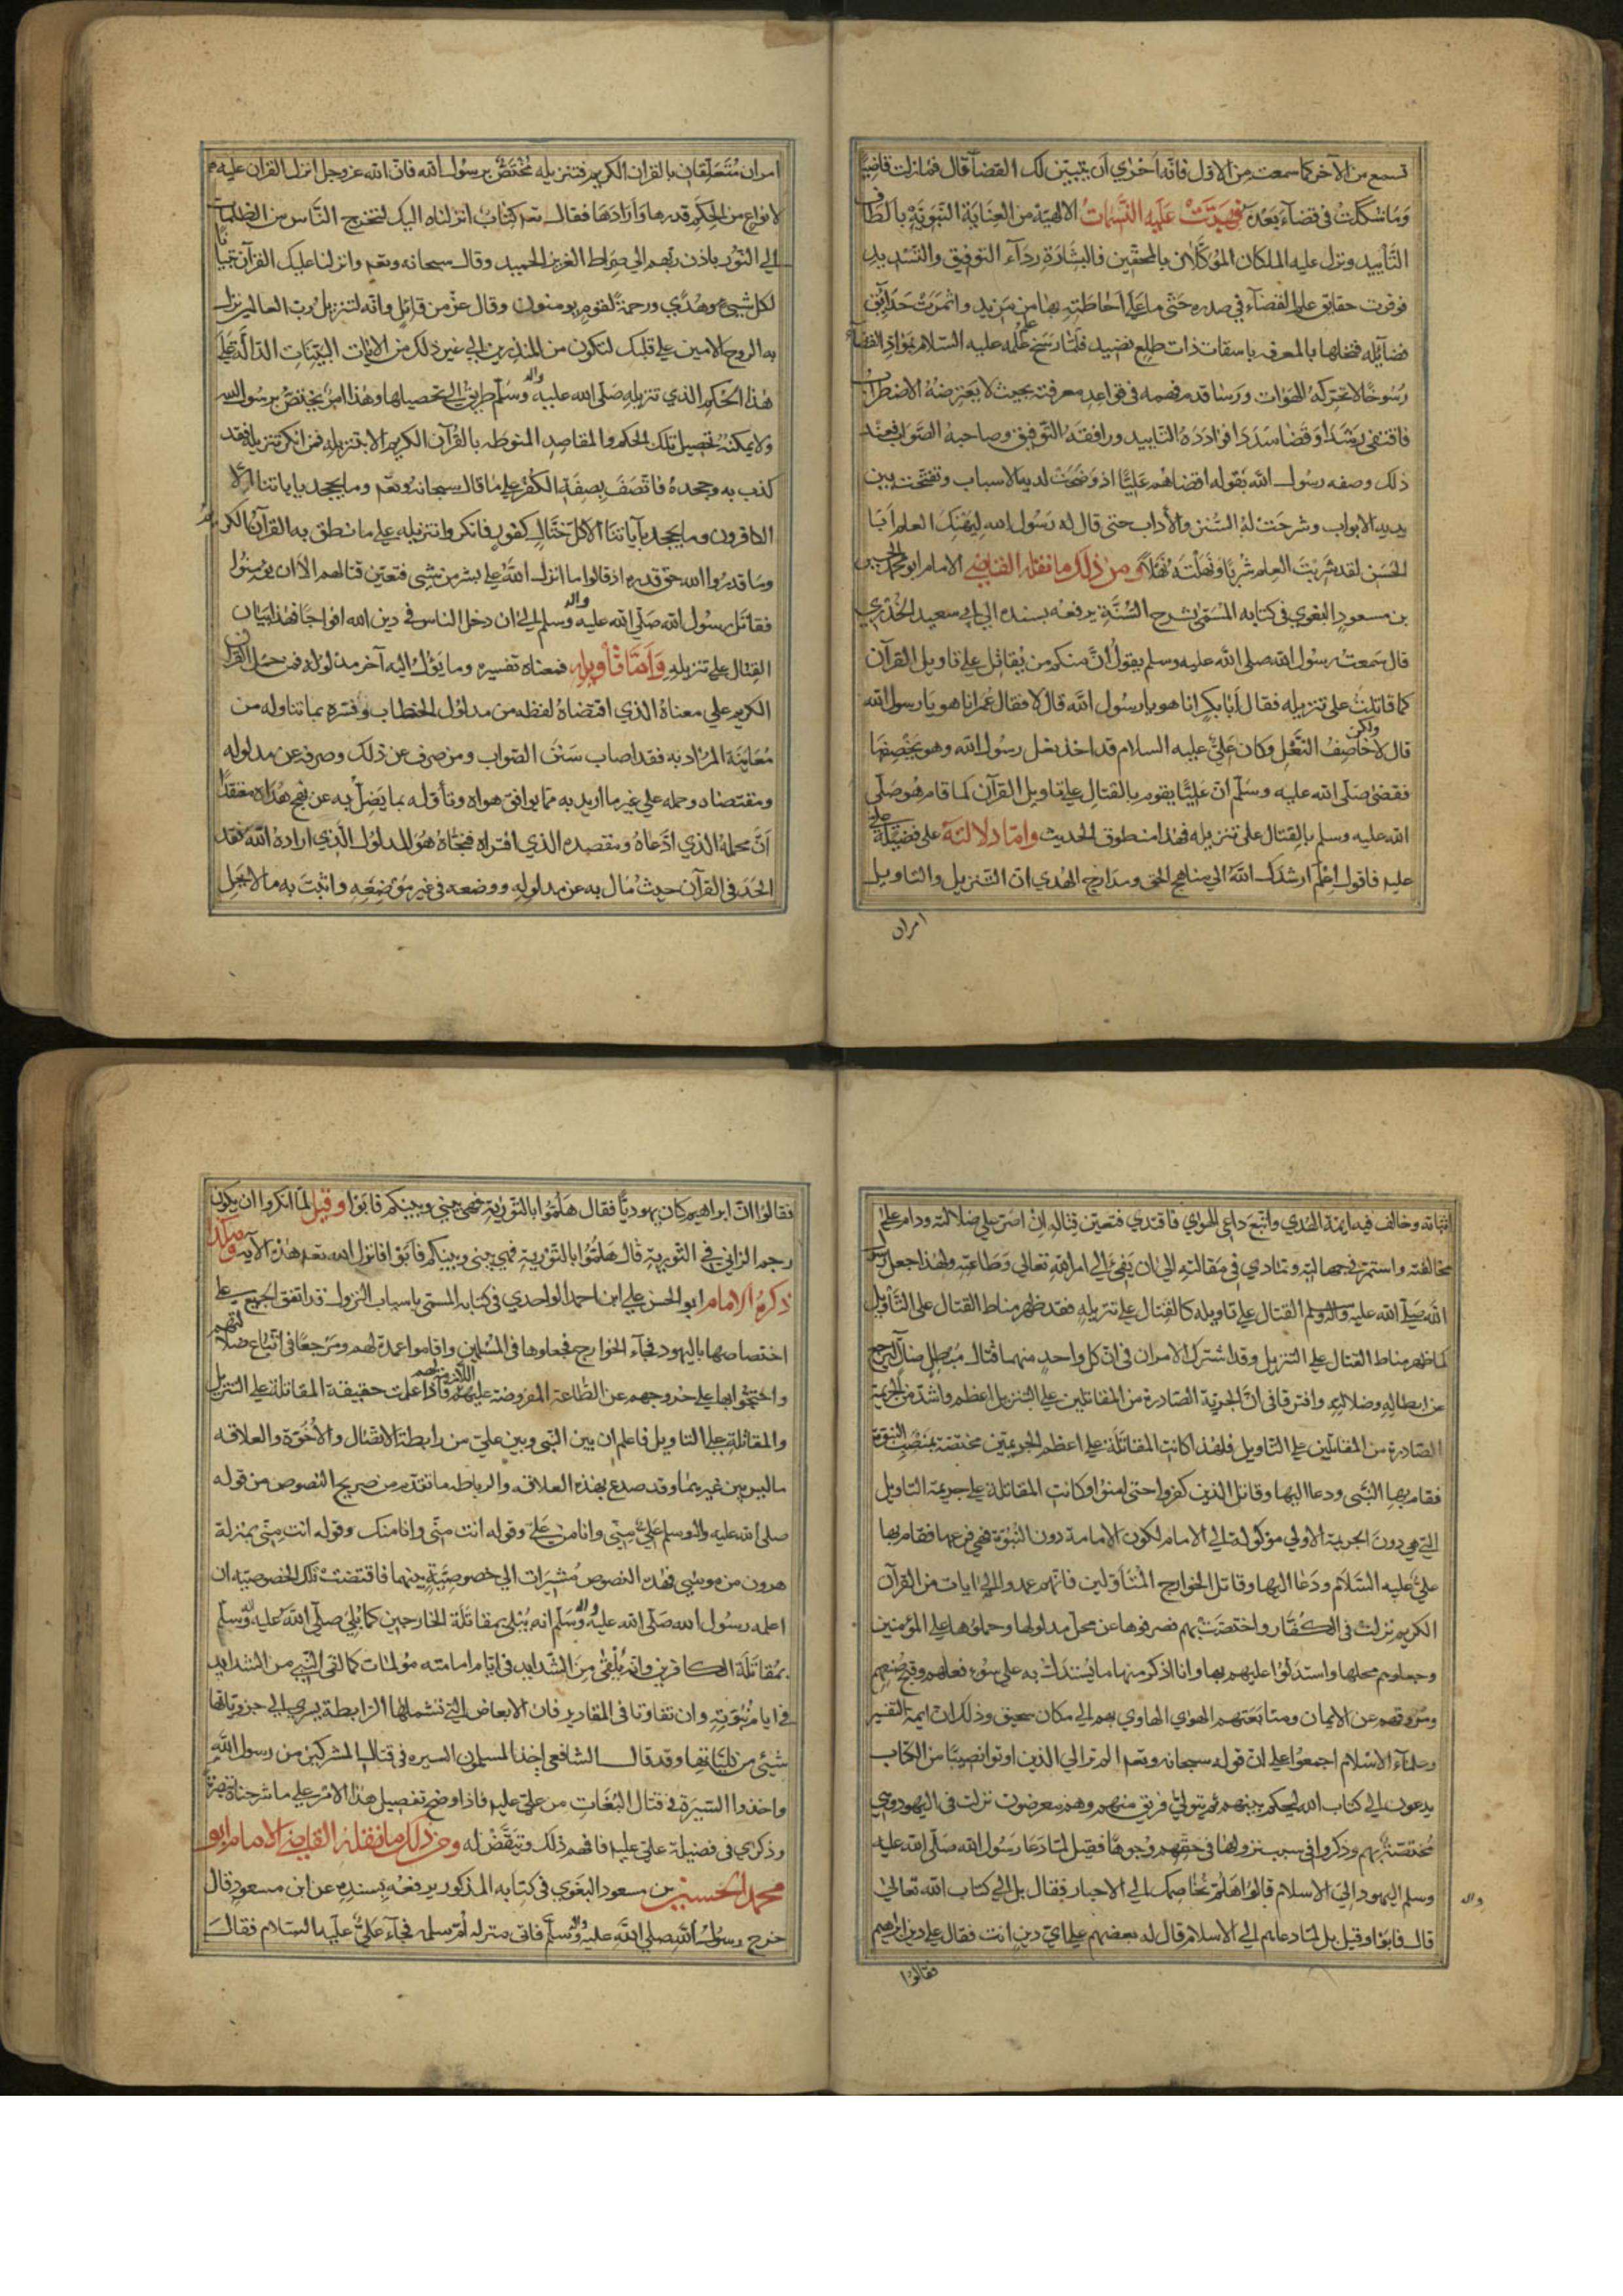 تسمع من الآخر كما سمعت من الاول فانه احري ان يتبين لك القضآ قال فمازلت قاضيًا
وما شككت في قضآء بعده فهبت عليه النسمات الالهية من العناية النبوية بالطاف
التأييد ونزل عليه الملكان الموكلان بالمحقين فالبشارة ردآء التوفيق والتسديد
فوقرت حقايق علم القضآء في صدره حتى ما علي احاطته بها من مزيد واثمرت حدايق
فضايله فنخلها بالمعرفه باسقات ذات طلع نضيد فلما رسخ علمه عليه السلام بمواد القضاء
رسوخًا لا تحركه الهوات ورسا قدم فهمه في قواعد معرفته بحيث لا يعترضه الاضطراب
ذلك وصفه رسول الله بقوله اقضاهم عليا اذ وضحت لديه الاسباب وتفتحت بين
يديه الابواب وشرحت له السنن والأداب حتى قال له رسول الله ليهنك العلم ابا
الحسن لقد شربت العلم شربا ونهلته نهلا ومن ذلك ما نقله القاضي الامام ابو محمد الحسين
بن مسعود البغوي في كتابه المسمي بشرح السنة يرفعه بسنده الي ابي سعيد الخدري
قال سمعت رسول الله صلى الله عليه وسلم يقول ان منكم من يقاتل علي تاويل القرآن
كما قاتلت على تنزيله فقال ابا بكر انا هو يا رسول الله قال لا فقال عمر انا هو يا رسول الله
قال لا ولكن خاصف النعل وكان علي عليه السلام قد اخذ نعل رسول الله وهو يخصفها
فقضى صلى الله عليه وسلم ان عليًا يقوم بالقتال علي تاويل القرآن كما قام هو صلى
الله عليه وسلم بالقتال على تنزيله فهذا منطوق الحديث واما دلالته على فضيلة علي
عليه فاقول اعلم ارشدك الله الي مناهج الحق ومدارج الهدي ان التنزيل والتاويل
امران
امران متعلقان بالقران الكريم فتنزيله مختص برسول الله فان الله عز وجل انزل القران عليه
لانواع من الحكم قدرها وارادها فقال تعم كتاب انزلناه اليك لتخرج الناس من الظلمات
الي النور باذن ربهم الي صراط العزيز الحميد وقال سبحانه وتعم وانزلنا عليك القرآن تبيانا
لكل شيئ وهدي ورحمة لقوم يومنون وقال عز من قايل وانه لتنزيل رب العالمين نزل
به الروح الامين علي قلبك لتكون من المنذرين الي غير ذلك من الايات البينات الدالة علي
هذا الحكم الذي تنزيله صلى الله عليه واله وسلم طريق الي تحصيلها وهذا امر يختص برسول الله
ولا يمكنه تحصيل تلك الحكم والمقاصد المنوطه بالقرآن الكريم الا بتنزيله فمن انكر تنزيله فقد
كذب به وجحده فاتصف بصفة الكفر علي ما قال سبحانه وتعم وما يجحد باياتنا الا
الكافرون وما يجحد بآياتنا الا كل ختال كفور فانكروا تنزيله علي ما نطق به القرآن الكريم
وما قدروا الله حق قدره اذ قالوا ما انزل الله علي بشر من شيئ فتعين قتالهم الا ان يومنوا
فقاتل رسول الله صلى الله عليه واله وسلم الي ان دخل الناس في دين الله افواجا فهذا بيان
القتال علي تنزيله واما تأويله فمعناه تفسيره وما يؤل اليه آخر مدلوله فمن حمل القران
الكريم علي معناه الذي اقتضاه لفظه من مدلول الخطاب وفسره بما تناوله من
معاينة المراد به فقد اصاب سنن الصواب ومن صرف عن ذلك وصرفه عن مدلوله
ومقتضاه وحمله علي غير ما اريد به مما يوافق هواه وتأوله بما يضل به عن نهج هداه معتقدًا
ان محمله الذي ادعاه ومقصده الذي افتراه فنحاه هو المدلول الذي اراده الله فقد
الحد في القرآن حيث مال به عن مدلوله ووضعه في غير موضعه واثبت به ما لا يحل
اثباته وخالف فيه ايمة الهدي واتبع داعي الهواي فاقتدي فتعين قتاله ان اصر علي ضلالته ودام علي
مخالفته واستمر في جهالته وتمادي في مقالته الي ان يفئ الي امر الله تعالي وطاعته ولهذا جعل رسول
الله صلى الله عليه واله وسلم القتال علي تاويله كالقتال علي تنزيله فقد ظهر مناط القتال على التأويل
كما ظهر مناط القتال علي التنزيل وقد اشترك الامران في ان كل واحد منهما قتال مبطل ضال ليرجع
عن ابطاله وضلاله وافترقا في ان الجريمة الصادرة من المقاتلين علي التنزيل اعظم واشد من الجريمة
الصادرة من المقاتلين علي التاويل فلهذا كانت المقاتلة علي اعظم الجريمتين مختصة بمنصب النبوة
فقام بها النبي ودعا اليها وقاتل الذين كفروا حتى امنوا وكانت المقاتلة علي جريمة التاويل
التي هي دون الجريمة الاولي موكولة الي الامام لكون الامامة دون النبوة فهي فرعها فقام بها
علي عليه السلام ودعا اليها وقاتل الخوارج المتأولين فانهم عمدوا الي ايات من القرآن
الكريم نزلت في الكفار واختصت بهم فصرفوها عن محل مدلولها وحملوها علي المؤمنين
وجعلوهم محلها واستدلوا عليهم بها وانا اذكر منها ما يستدل به على سوء فعلهم وقبح صنعهم
ومروقهم عن الايمان ومتابعتهم الهوي الهاوي بهم الي مكان سحيق وذلك ان ايمة التفسير
وعلمآء الاسلام اجمعوا علي ان قوله سبحانه وتعم الم تر الي الذين اوتوا نصيبا من الكتاب
يدعون الي كتاب الله ليحكم بينهم ثم يتولي فريق منهم وهم معرضون نزلت في اليهود وهي
مختصة بهم وذكروا في سبب نزولها في حقهم وجوها فقيل لما دعا رسول الله صلى الله عليه
واله
وسلم اليهود الي الاسلام قالوا هلم نخاصمك الي الاحبار فقال بل الي كتاب الله تعالي
قال فابوا وقيل بل لما دعاهم الي الاسلام قال له بعضهم علي اي دين انت فقال علي دين ابراهيم
فقالوا
فقالوا ان ابراهيم كان يهوديًا فقال هلموا بالتورية فهي بيني وبينكم فابوا وقيل لما انكروا ان يكون
رجم الزاني في التورية قال هلموا بالتورية فهي بيني وبينكم فابوا فانزل الله تعم هذه الآيه وهكذا
ذكره الامام ابو الحسن علي ابن احمد الواحدي في كتابه المسمي باسباب النزول فقد اتفق الجميع علي
اختصاصها باليهود فجآء الخوارج فجعلوها في المسلمين واقاموا عمدة لهم ومرجعًا في اتباع ضلالتهم
واحتجوا بها علي خروجهم عن الطاعة المفروضة عليهم فاذا علمت حقيقة المقاتلة علي التنزيل
والمقاتلة علي التاويل فاعلم ان بين النبي وبين علي من رابطة الاتصال والأخوة والعلاقه
ما ليس بين غيرهما وقد صدع بهذه العلاقه والرابطه ما تقدم من صريح النصوص من قوله
صلى الله عليه واله وسلم علي مني وانا من علي وقوله انت مني وانا منك وقوله انت مني بمنزلة
هرون من موسي فهذه النصوص مشيرات الي خصوصية بينهما فاقتضت تلك الخصوصية ان
اعلمه رسول الله صلى الله عليه واله وسلم انه يبلي بمقاتلة الخارجين كما بلي صلى الله عليه واله وسلم
بمقاتلة الكافرين وانه يلقى من الشدايد في ايام امامته مولمات كما لقي النبي من الشدايد
في ايام نبوته وان تفاوتا في المقادير فان الابعاض التي تشملها الرابطة يسري الي جزوياتها
شيئ من كلياتها وقد قال الشافعي اخذ المسلمون السيره في قتال المشركين من رسول الله
واخذوا السيرة في قتال البغات من علي عليه فاذا وضح تفصيل هذا الامر علي ما شرحناه
وذكري في فضيلة علي عليه فافهم ذلك وتيقض له ومن ذلك ما نقله القاضي الامام ابو
محمد الحسين بن مسعود البغوي في كتابه المذكور يرفعه بسنده عن ابن مسعود قال
خرج رسول الله صلى الله عليه واله وسلم فاتى منزله ام سلمه فجآء علي عليه السلام فقال